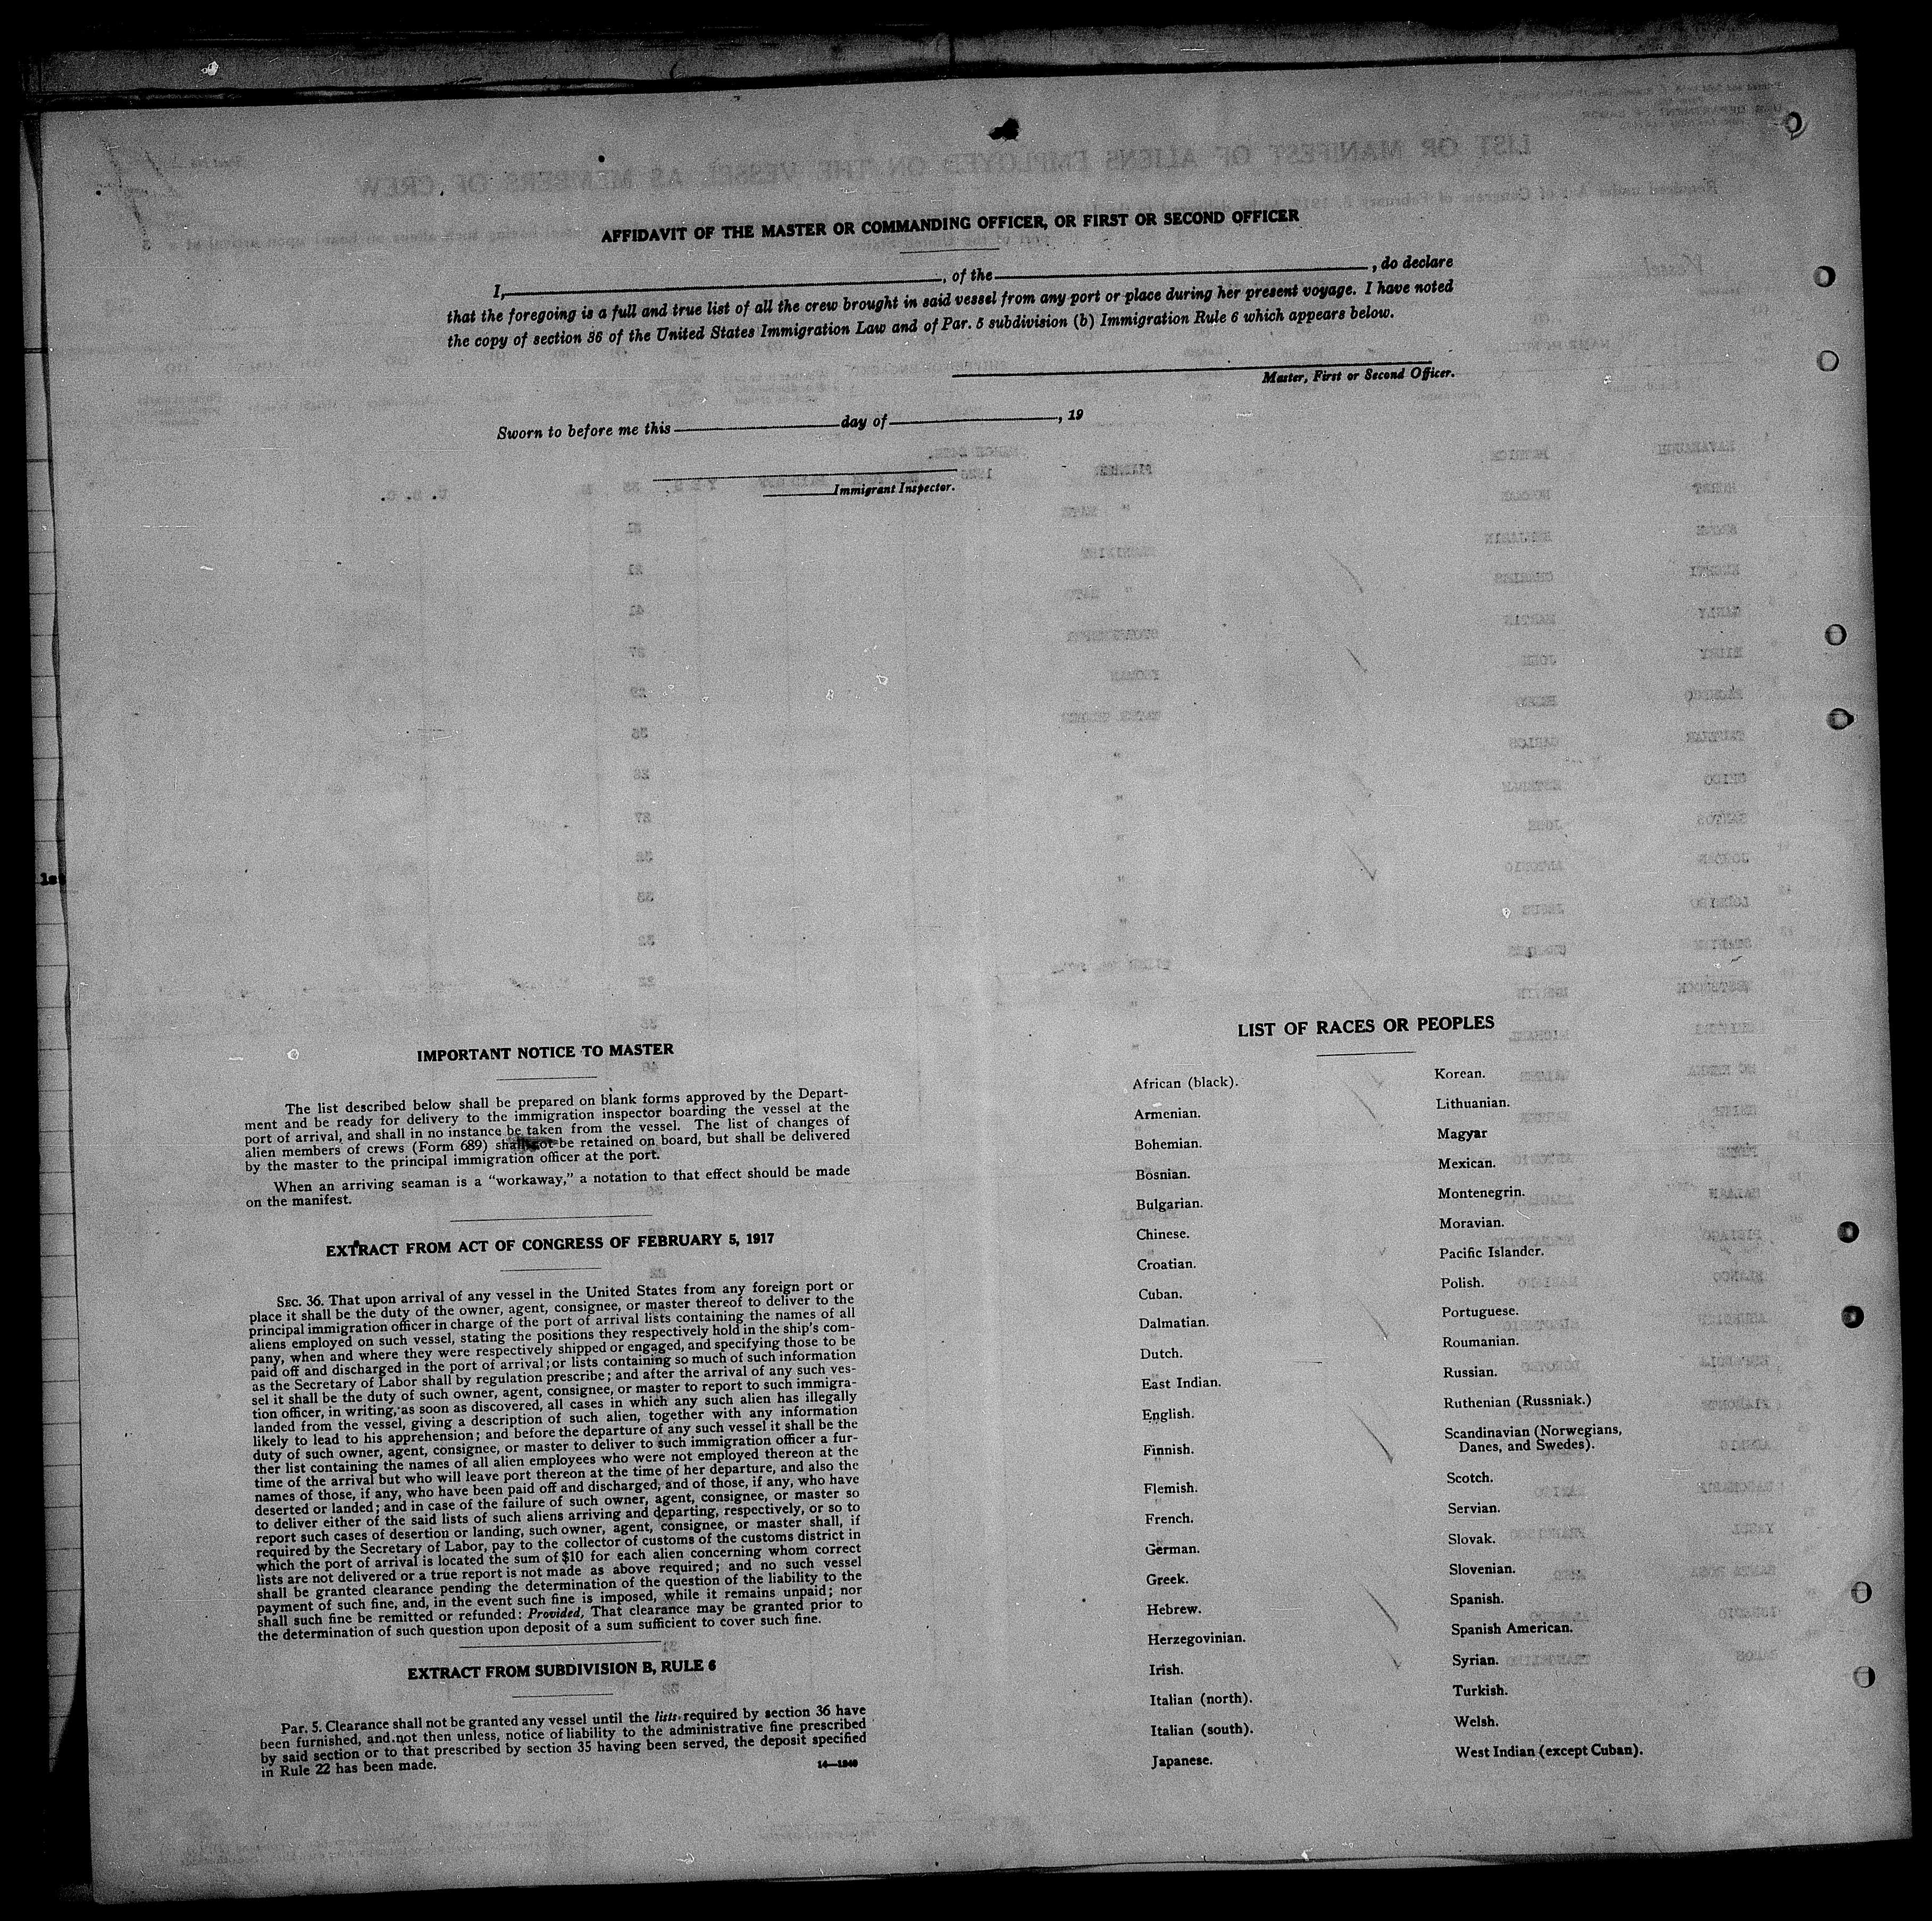 AFFIDAVIT OF THE MASTER OR COMMANDING OFFICER, OR FIRST OR SECOND OFFICER
I, , of the , do declare
that the foregoing is a full and true list of all the crew brought in said vessel from any port or place during her present voyage. I have noted
the copy of section 36 of the United States Immigration Law and of Par. 5 subdivision (b) Immigration Rule 6 which appears below.
Master, First or Second Officer.
Sworn to before me this day of , 19
Immigrant Inspector.
IMPORTANT NOTICE TO MASTER
The list described below shall be prepared on blank forms approved by the Depart-
ment and be ready for delivery to the immigration inspector boarding the vessel at the
port of arrival, and shall in no instance be taken from the vessel. The list of changes of
alien members of crews (Form 689) shall not be retained on board, but shall be delivered
by the master to the principal immigration officer at the port.
When an arriving seaman is a "workaway," a notation to that effect should be made
on the manifest.
EXTRACT FROM ACT OF CONGRESS OF FEBRUARY 5, 1917
SEC. 36. That upon arrival of any vessel in the United States from any foreign port or
place it shall be the duty of the owner, agent, consignee, or master thereof to deliver to the
principal immigration officer in charge of the port of arrival lists containing the names of all
aliens employed on such vessel, stating the positions they respectively hold in the ship's com-
pany, when and where they were respectively shipped or engaged, and specifying those to be
paid off and discharged in the port of arrival; or lists containing so much of such information
as the Secretary of Labor shall by regulation prescribe; and after the arrival of any such ves-
sel it shall be the duty of such owner, agent, consignee, or master to report to such immigra-
tion officer, in writing, as soon as discovered, all cases in which any such alien has illegally
landed from the vessel, giving a description of such alien, together with any information
likely to lead to his apprehension; and before the departure of any such vessel it shall be the
duty of such owner, agent, consignee, or master to deliver to such immigration officer a fur-
ther list containing the names of all alien employees who were not employed thereon at the
time of the arrival but who will leave port thereon at the time of her departure, and also the
names of those, if any, who have been paid off and discharged, and of those, if any, who have
deserted or landed; and in case of the failure of such owner, agent, consignee, or master so
to deliver either of the said lists of such aliens arriving and departing, respectively, or so to
report such cases of desertion or landing, such owner, agent, consignee, or master shall, if
required by the Secretary of Labor, pay to the collector of customs of the customs district in
which the port of arrival is located the sum of $10 for each alien concerning whom correct
lists are not delivered or a true report is not made as above required; and no such vessel
shall be granted clearance pending the determination of the question of the liability to the
payment of such fine, and, in the event such fine is imposed, while it remains unpaid; nor
shall such fine be remitted or refunded: Provided, That clearance may be granted prior to
the determination of such question upon deposit of a sum sufficient to cover such fine.
EXTRACT FROM SUBDIVISION B, RULE 6
Par. 5. Clearance shall not be granted any vessel until the lists required by section 36 have
been furnished, and not then unless, notice of liability to the administrative fine prescribed
by said section or to that prescribed by section 35 having been served, the deposit specified
in Rule 22 has been made.
14—1240
LIST OF RACES OR PEOPLES
African (black).
Armenian.
Bohemian.
Bosnian.
Bulgarian.
Chinese.
Croatian.
Cuban.
Dalmatian.
Dutch.
East Indian.
English.
Finnish.
Flemish.
French.
German.
Greek.
Hebrew.
Herzegovinian.
Irish.
Italian (north).
Italian (south).
Japanese.
Korean.
Lithuanian.
Magyar
Mexican.
Montenegrin.
Moravian.
Pacific Islander.
Polish.
Portuguese.
Roumanian.
Russian.
Ruthenian (Russniak.)
Scandinavian (Norwegians,
Danes, and Swedes).
Scotch.
Servian.
Slovak.
Slovenian.
Spanish.
Spanish American.
Syrian.
Turkish.
Welsh.
West Indian (except Cuban).